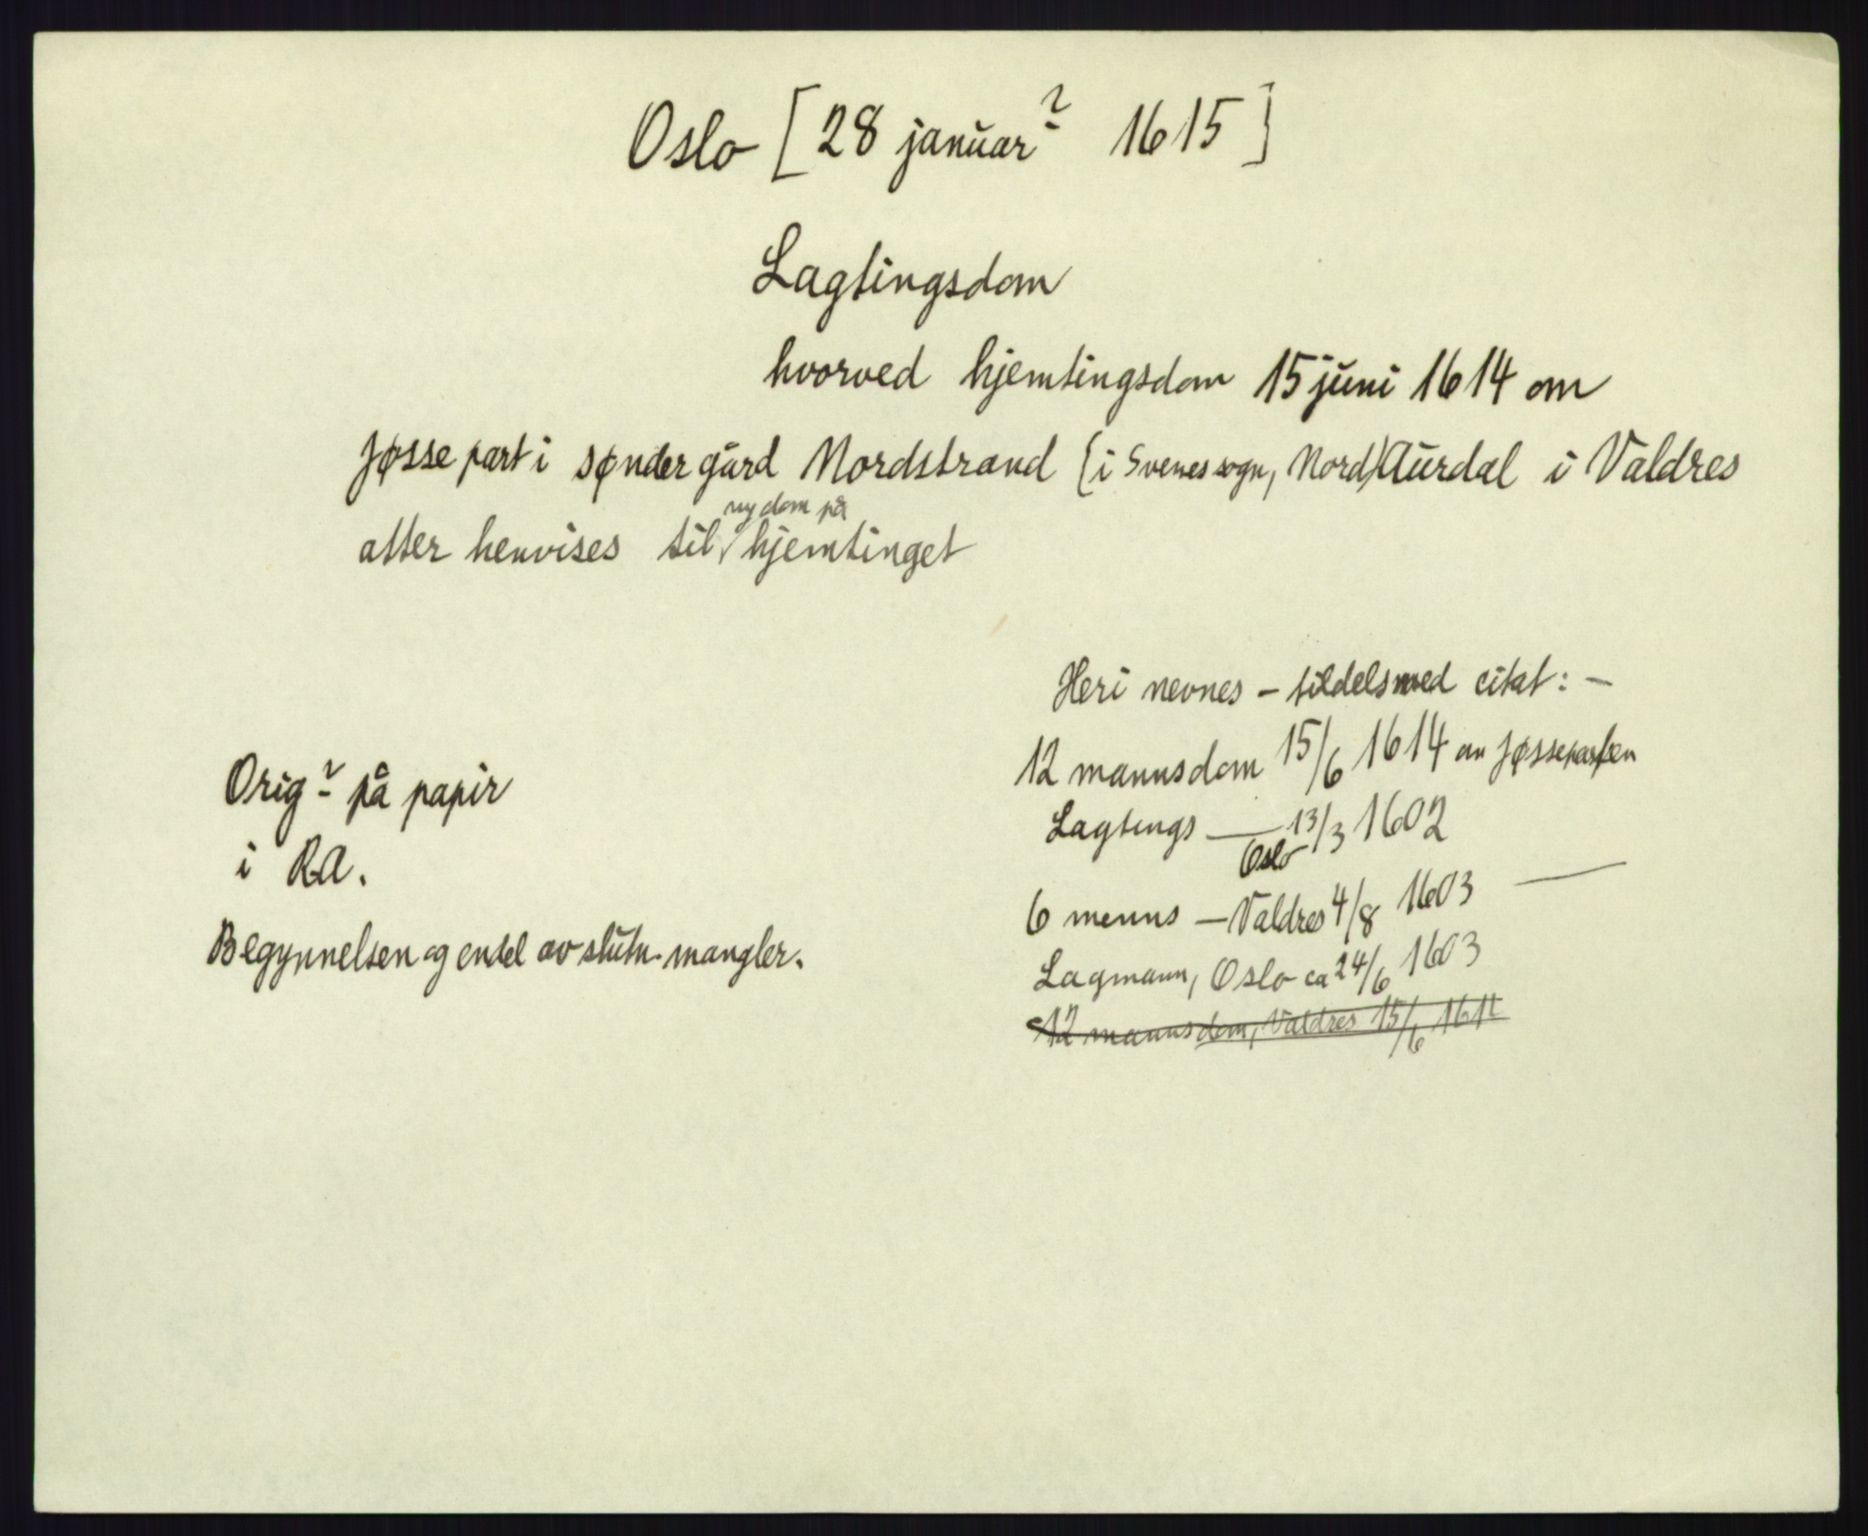 Oslo [28 januar? 1615]
Lagtingsdom
hvorved hjemtingsdom 15 juni 1614 om
Jøssepart i søndergård Nordstrand (i Svenes sogn, Nord)Aurdal i Valdres
ny dom på
atter henvises til hjemtinget
Heri nevnes – tildels med citat: –
12 mannsdom 15/6 1614 om Jøsseparten
Lagtings — 13/3 1602
Oslo
6 menns – Valdres 4/8 1603 —
Lagmann, Oslo ca 24/6 1603
12 mannsdom, Valdres 15/6
Orig? på papir
i RA.
Begynnelsen og endel av slutn. mangler.